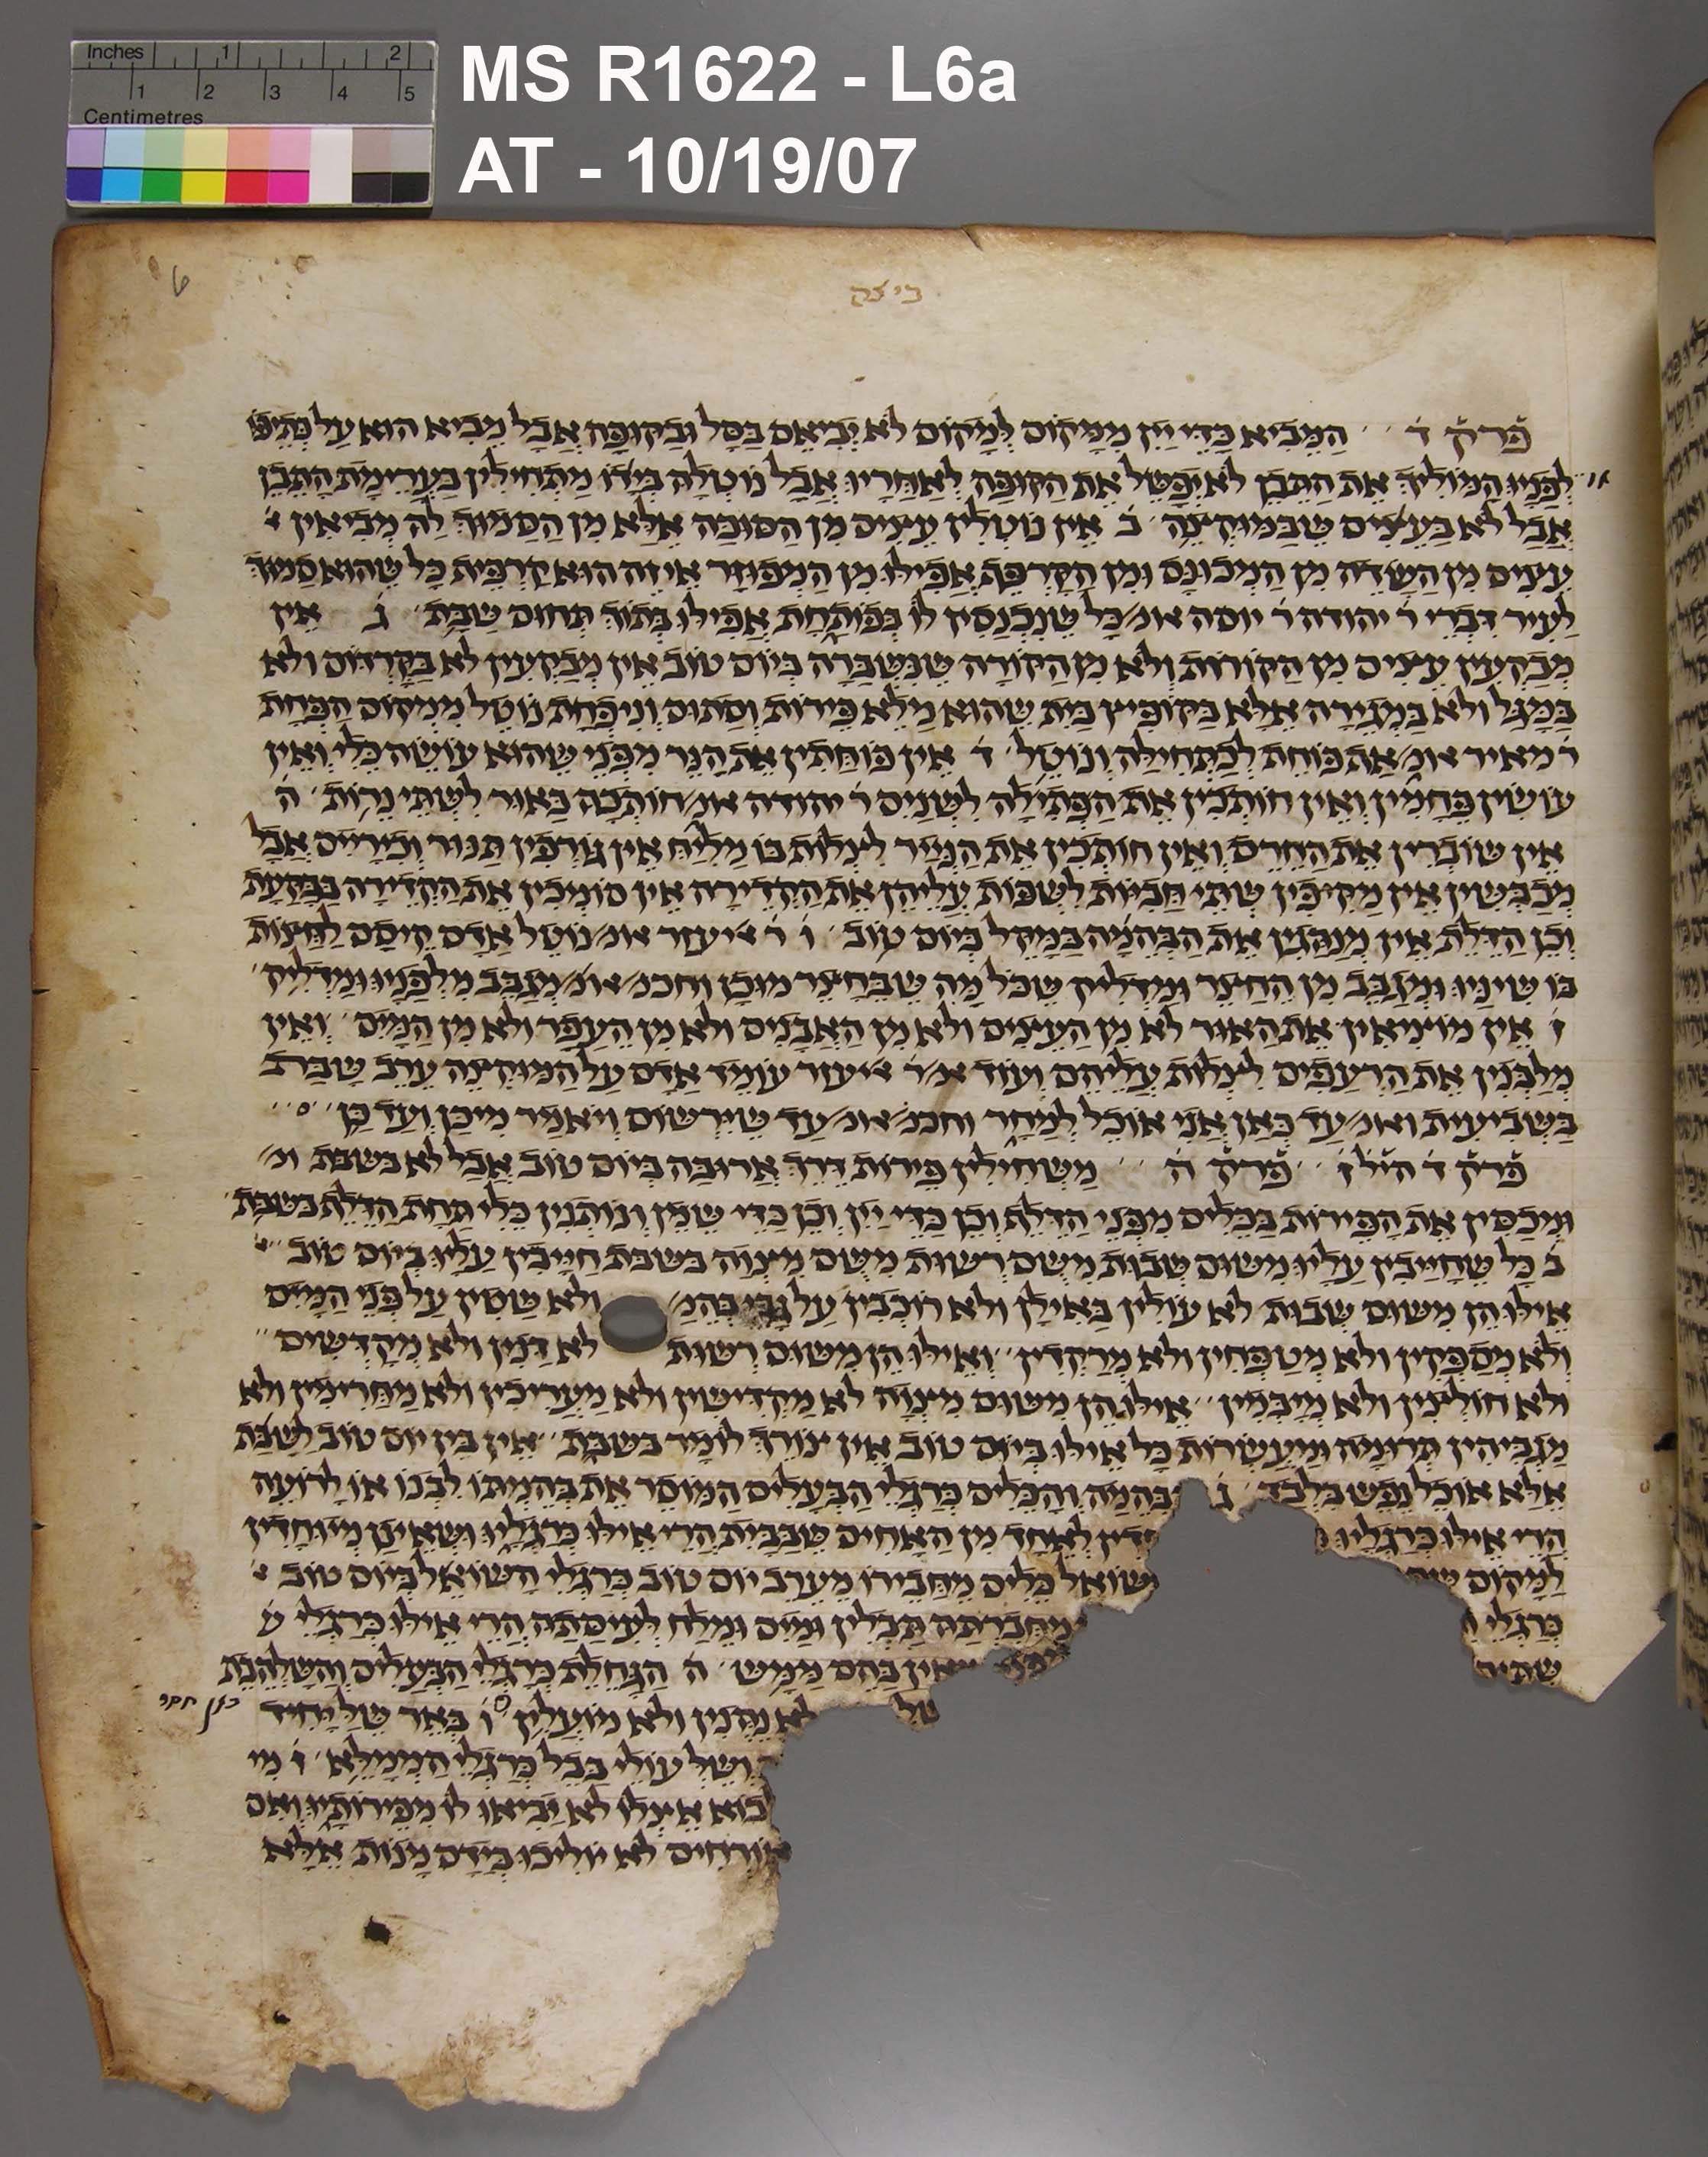 Inches 1 2
1 2 3 4 5
Centimetres
MS R1622 - L6a
AT - 10/19/07
6
ביצה
פרק ד המביא כדי יין ממקום למקום לא יביאם בסל ובקופה אבל מביא הוא על כתיפו
לפניו המוליך את התבן לא יפשל את הקופה לאחריו אבל נוטלה בידו מתחילין בערימת התבן
אבל לא בעצים שבמוקצה ב אין נוטלין עצים מן הסוכה אלא מן הסמוך לה מביאין
עצים מן השדה מן המכונס ומן הקרפף אפילו מן המפוזר איזה הוא קרפית כל שהוא סמוך
לעיר דברי ר יהודה ר יוסה אומ כל שנכנסין לו בפותחת אפילו בתוך תחום שבת ג אין
מבקעין עצים מן הקורות ולא מן הקורה שנשברה ביום טוב אין מבקעין לא בקרדום ולא
במגל ולא במגירה אלא בקופיץ בית שהוא מלא פירות וסתום וניפחת נוטל ממקום הפחת
ר מאיר אומ אף פוחת לכתחילה ונוטל ד אין פוחתין את הנר מפני שהוא עושה כלי ואין
עושין פחמין ואין חותכין את הפתילה לשנים ר יהודה אומ חותכה באור לשתי נרות ה
אין שוברין את החרס ואין חותכין את הנייר לצלות בו מליח אין גורפין תנור וכירים אבל
מכבשין אין מקיפין שתי חביות לשפות עליהן את הקדירה אין סומכין את הקדירה בבקעת
וכן הדלת אין מנהגין את הבהמה במקל ביום טוב ו ר אליעזר אומ נוטל אדם קיסם לחצות
בו שיניו ומגבב מן החצר ומדליק שכל מה שבחצר מוכן וחכמ אומ מגבב מלפניו ומדליק
ז אין מוציאין את האור לא מן העצים ולא מן האבנים ולא מן העפר ולא מן המים ואין
מלבנין את הרעפים לצלות עליהם ועוד אמ ר אליעזר עומד אדם על המוקצה ערב שבת
בשביעית ואומ עד כאן אני אוכל למחר וחכמ אומ עד שירשום ויאמר מיכן ועד כן
פרק ד הילז פרק ה משחילין פירות דרך ארובה ביום טוב אבל לא בשבת
ומכסין את הפירות בכלים מפני הדלף וכן כדי יין וכן כדי שמן ונותנין כלי תחת הדלף בשבת
ב כל שחייבין עליו משום שבות משם רשות משם מצוה בשבת חייבין עליו ביום טוב
אילו הן משום שבות לא עולין באילן ולא רוכבין על גבי בהמ ולא שטין על פני המים
ולא מספקין ולא מטפחין ולא מרקדין ואילו הן משום רשות לא דנין ולא מקדשים
ולא חולצין ולא מיבמין אילו הן משום מצוה לא מקדישין ולא מעריכין ולא מחרימין ולא
מגביהין תרומה ומעשרות כל אילו ביום טוב אין צורך לומר בשבת אין בין יום טוב לשבת
אלא אוכל נפש בלבד ג בהמה והכלים כרגלי הבעלים המוסר את בהמתו לבנו או לרועה
הרי אילו כרגליו חדין לאחד מן האחים שבבית הרי אילו כרגליו ושאינן מיוחדין
למקום שואל כלים מחבירו מערב יום טוב כרגלי השואל ביום טוב
כרגלי מחברתה תבלין ומים ומלח לעיסתה הרי אילו כרגלי
שתיה שאין בהם ממש ה הגחלת כרגלי הבעלים והשלהבת
של לא נהנין ולא מועלין ו באר שליחיד
ושל עולי בבל כרגלי הממלא ז מי
לבוא אצלו לא יביאו לו מפירותיו ואם
אורחים לא יוליכו בידם מנות אלא